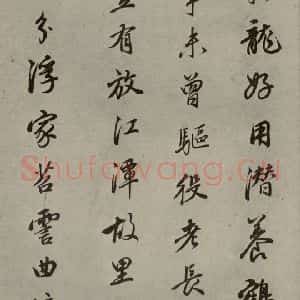 龍好用潛養鶴
未曾驅役老長
有放江潭故里
分浮家苕霅曲
Shufawang.cn